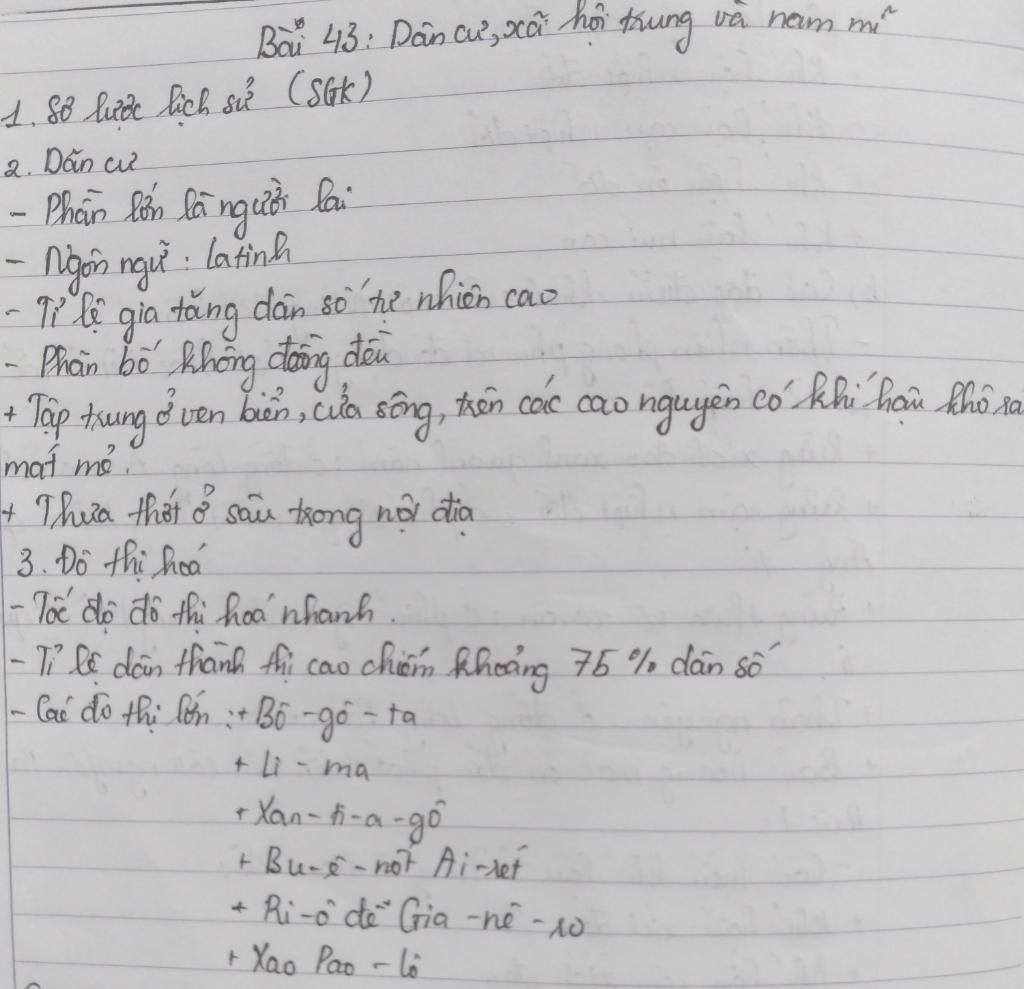 Bài 43: Dân cư, xã hội trung và nam mĩ
1. Sơ lược lịch sử (SGK)
2. Dân cư
- Phần lớn là người lai
- Ngôn ngữ: Latinh
- Tỉ lệ gia tăng dân số tự nhiên cao
- Phân bố không đồng đều
+ Tập trung ở ven biển, cửa sông, trên các cao nguyên có khí hậu khô ráo
mát mẻ.
+ Thưa thớt ở sâu trong nội địa
3. Đô thị hoá
- Tốc độ đô thị hoá nhanh.
- Tỉ lệ dân thành thị cao chiếm khoảng 75% dân số
- Các đô thị lớn: + Bô-gô-ta
+ Li-ma
+ Xan-ti-a-gô
+ Bu-ê-nôt Ai-ret
+ Ri-ô đê Gia-nê-rô
+ Xao Pao-lô